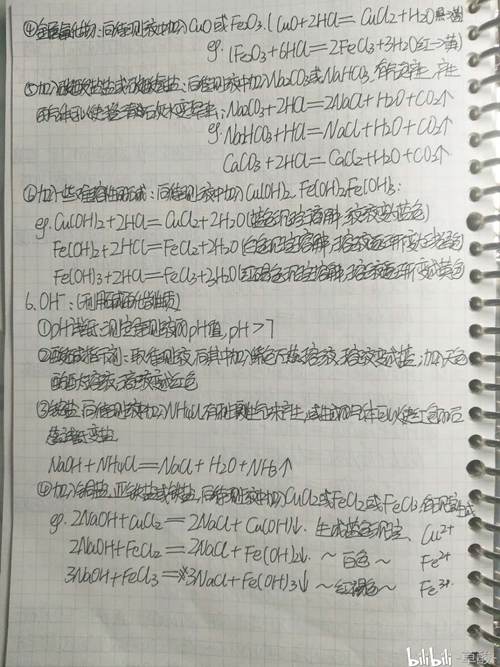 ④金属氧化物:向待测液中加入CuO或Fe2O3.(CuO+2HCl=CuCl2+H2O 黑→蓝
eg. (Fe2O3+6HCl=2FeCl3+3H2O 红→黄)
⑤加入碳酸盐或碳酸氢盐:向待测液中加Na2CO3或NaHCO3,有气泡产生,产生
的气体可以使澄清石灰水变浑浊;Na2CO3+2HCl=2NaCl+H2O+CO2↑
eg. NaHCO3+HCl=NaCl+H2O+CO2↑
CaCO3+2HCl=CaCl2+H2O+CO2↑
⑥加入一些难溶性的碱:向待测液中加入Cu(OH)2、Fe(OH)2、Fe(OH)3:
eg. Cu(OH)2+2HCl=CuCl2+2H2O(蓝色沉淀溶解,溶液变蓝色)
Fe(OH)2+2HCl=FeCl2+2H2O(白色沉淀溶解,溶液逐渐变成浅绿色
Fe(OH)3+2HCl=FeCl3+3H2O(红褐色沉淀溶解,溶液逐渐变成黄色
6. OH⁻:(利用碱的化学性质)
①pH试纸:测定待测液的pH值,pH>7
②酸碱指示剂:取待测液,向其中加入紫色石蕊溶液,溶液变成蓝;加入无色
酚酞溶液,溶液变红色
③铵盐:向待测液中加入NH4Cl,有刺激性气味产生,或生成的气体可以使红色的石
蕊试纸变蓝
NaOH+NH4Cl=NaCl+H2O+NH3↑
④加入铜盐、亚铁盐或铁盐,向待测液中加入CuCl2或FeCl2或FeCl3 有沉淀生成
eg. 2NaOH+CuCl2=2NaCl+Cu(OH)2↓ 生成蓝色沉淀、Cu²⁺
2NaOH+FeCl2=2NaCl+Fe(OH)2↓ ~ 白色 ~ Fe²⁺
3NaOH+FeCl3=3NaCl+Fe(OH)3↓ ~红褐色~ Fe³⁺
bilibili